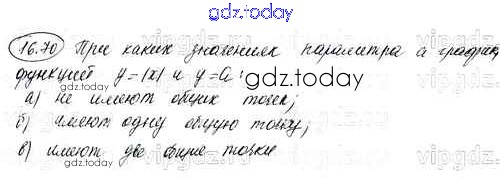 gdz.today
16.70 При каких значениях параметра а графики
функций y=|x| и y=a:
gdz.today
а) не имеют общих точек;
б) имеют одну общую точку;
в) имеют две общие точки
vipgdz.ru